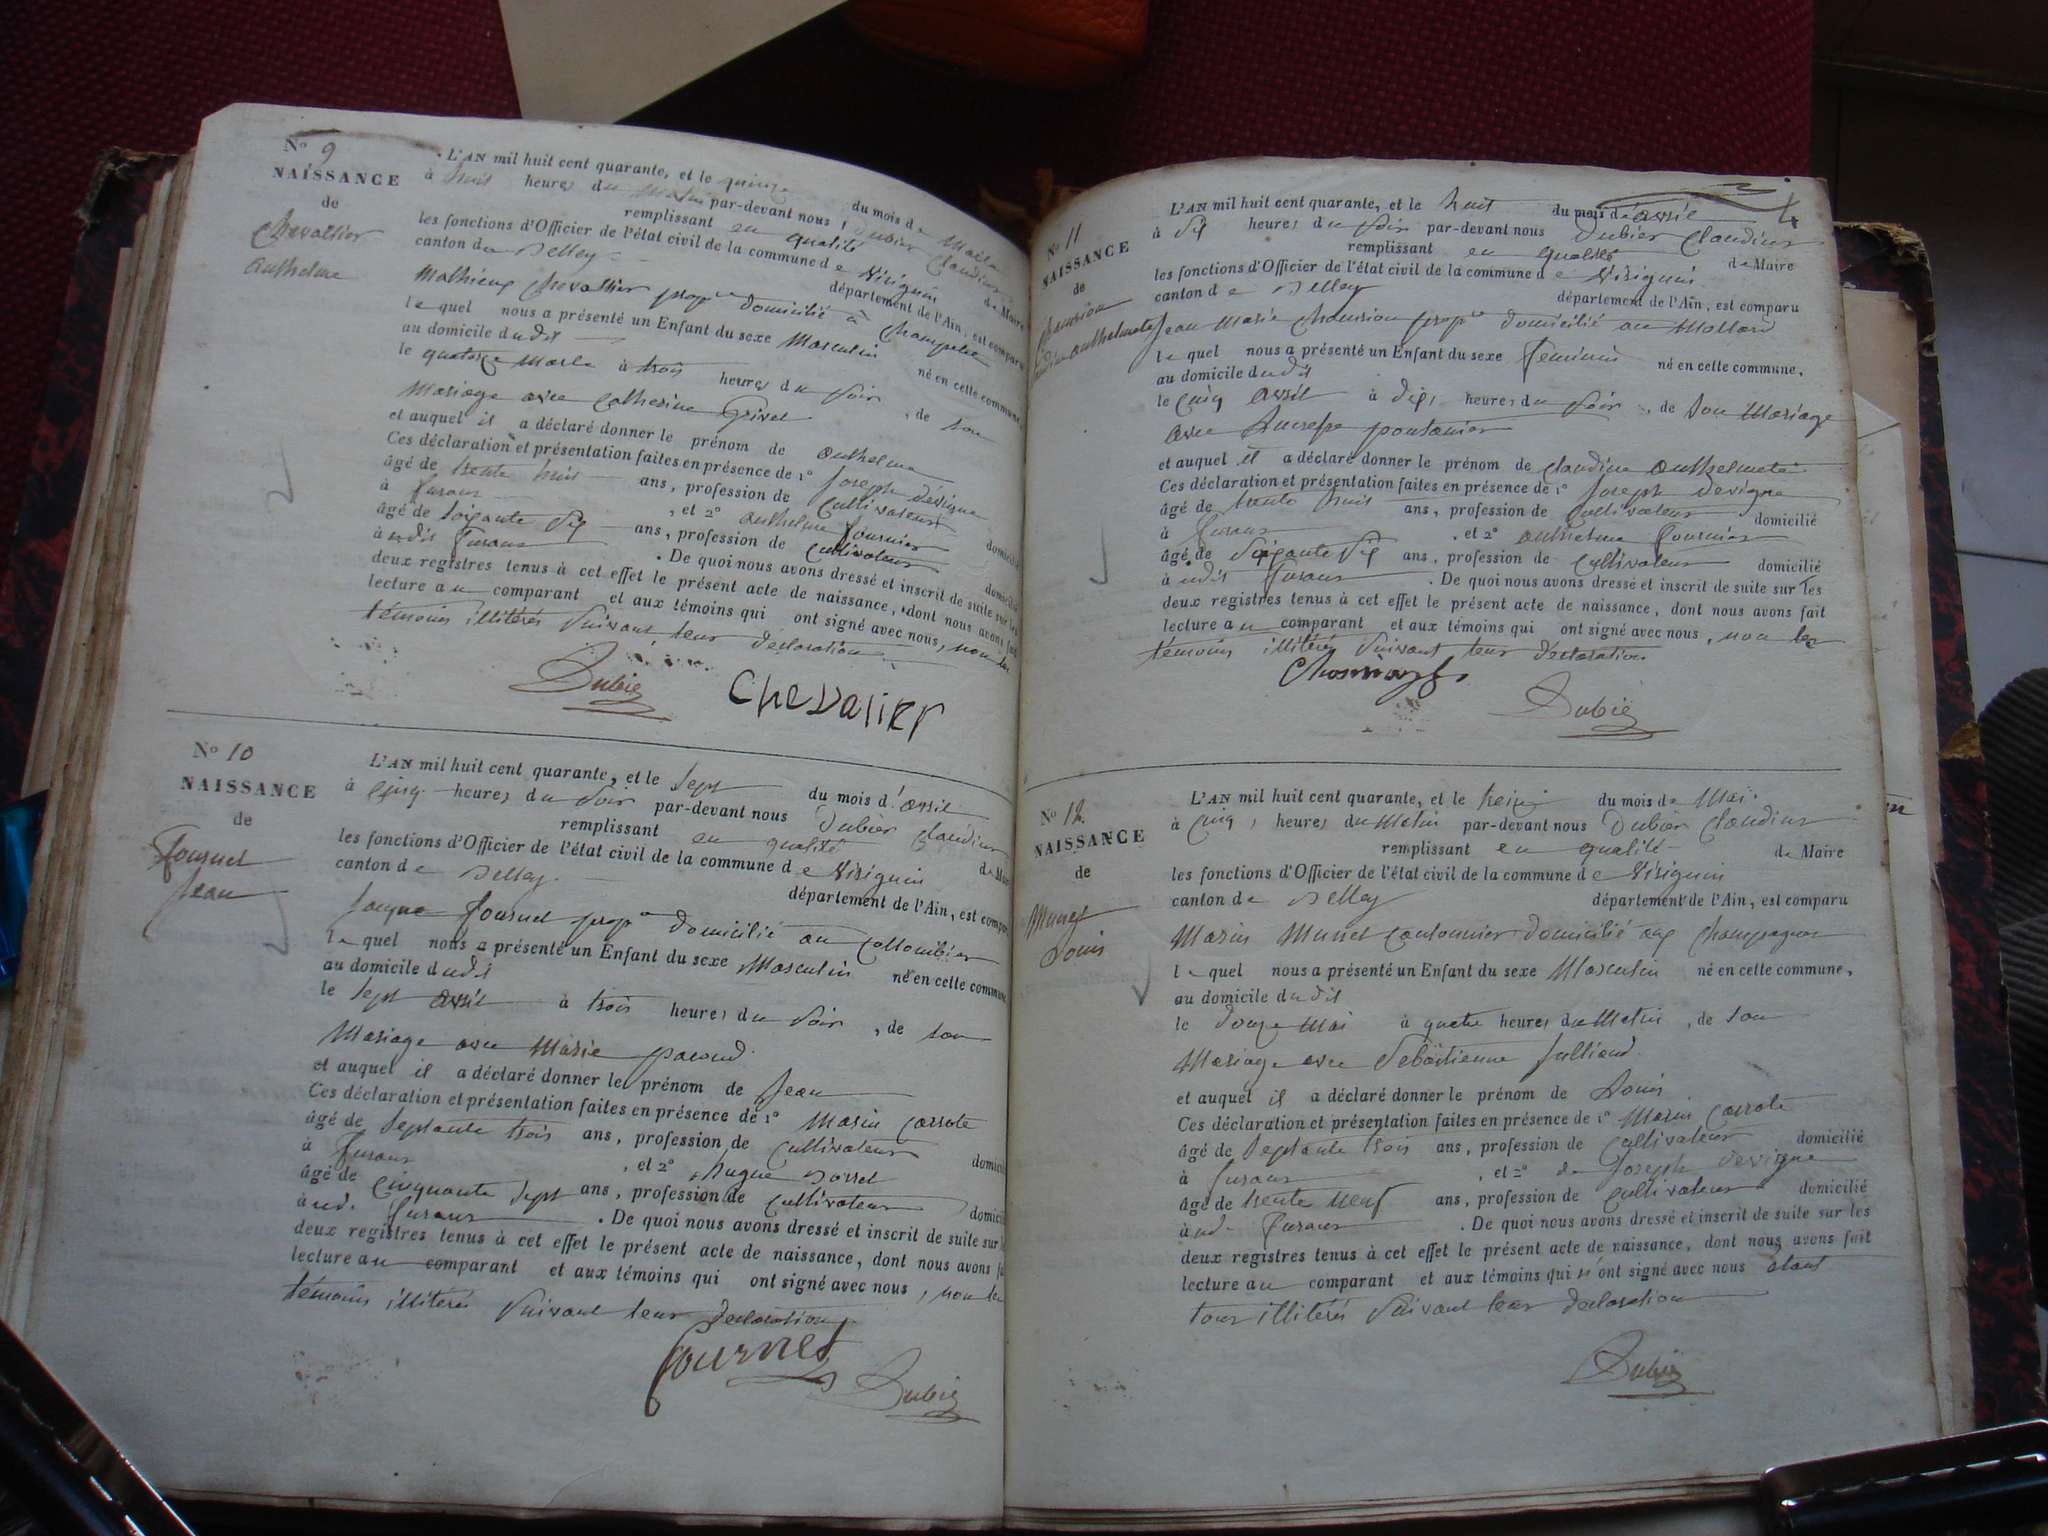 No 9
NAISSANCE
de
Chevallier
Anthelme
L'AN mil huit cent quarante, et le quinze du mois de Mars
à huit heures du Matin par-devant nous, Dubier Claudius
remplissant en qualité de Maire
les fonctions d'Officier de l'état civil de la commune de Virignin
canton de Belley département de l'Ain, est comparu
Mathieux Chevallier propre domicilié à
lequel nous a présenté un Enfant du sexe Masculin né en cette commune
au domicile dudit
le quatorze Mars à trois heures du Soir, de son
Mariage avec Catherine Grivet
et auquel il a déclaré donner le prénom de Anthelme
Ces déclaration et présentation faites en présence de 1° Joseph devigne
âgé de trente huit ans, profession de Cultivateur domicilié
à furans, et 2° Anthelme fournier
âgé de soixante six ans, profession de Cultivateur domicilié
à udit furans. De quoi nous avons dressé et inscrit de suite sur les
deux registres tenus à cet effet le présent acte de naissance, dont nous avons fait
lecture au comparant et aux témoins qui ont signé avec nous, non les
témoins illitérés Suivant leur déclaration
Dubier Chevalier
No 10
NAISSANCE
de
Fournet
Jean
L'AN mil huit cent quarante, et le Sept du mois d'avril
à Cinq heures du Soir par-devant nous Dubier Claudius
remplissant en qualité de Maire
les fonctions d'Officier de l'état civil de la commune de Virignin
canton de Belley département de l'Ain, est comparu
fournet propre domicilié au Collombier
lequel nous a présenté un Enfant du sexe Masculin né en cette commune
au domicile dudit
le Sept avril à trois heures du Soir, de son
Mariage avec Marie
et auquel il a déclaré donner le prénom de Jean
Ces déclaration et présentation faites en présence de 1° Marin Carrote
âgé de Septante trois ans, profession de Cultivateur domicilié
à furans, et 2° hugue
âgé de Cinquante Sept ans, profession de Cultivateur domicilié
à ud. furans. De quoi nous avons dressé et inscrit de suite sur les
deux registres tenus à cet effet le présent acte de naissance, dont nous avons fait
lecture au comparant et aux témoins qui ont signé avec nous, non les
témoins illitérés Suivant leur déclaration
fournet Dubier
4
No 11
NAISSANCE
de
anthelmete
L'AN mil huit cent quarante, et le huit du mois d'avril
à Six heures du Soir par-devant nous Dubier Claudius
remplissant en qualité de Maire
les fonctions d'Officier de l'état civil de la commune de Virignin
canton de Belley département de l'Ain, est comparu
Jean Marie propre domicilié au Mollard
lequel nous a présenté un Enfant du sexe féminin né en cette commune,
au domicile dudit
le Cinq avril à Six heures du Soir, de son Mariage
avec
et auquel il a déclaré donner le prénom de Claudine Anthelmete
Ces déclaration et présentation faites en présence de 1° Joseph devigne
âgé de trente huit ans, profession de Cultivateur domicilié
à furans, et 2° anthelme fournier
âgé de Soixante Six ans, profession de Cultivateur domicilié
à udit furans. De quoi nous avons dressé et inscrit de suite sur les
deux registres tenus à cet effet le présent acte de naissance, dont nous avons fait
lecture au comparant et aux témoins qui ont signé avec nous, non les
témoins illitérés Suivant leur déclaration
Dubier
No 12
NAISSANCE
de
Munet
Louis
L'AN mil huit cent quarante, et le treize du mois de Mai
à Cinq heures du Matin par-devant nous Dubier Claudius
remplissant en qualité de Maire
les fonctions d'Officier de l'état civil de la commune de Virignin
canton de Belley département de l'Ain, est comparu
Marin Munet Cantonnier domicilié aux
lequel nous a présenté un Enfant du sexe Masculin né en cette commune,
au domicile dudit
le Douze Mai à quatre heures du Matin, de son
Mariage avec Sebastienne Julliand
et auquel il a déclaré donner le prénom de Louis
Ces déclaration et présentation faites en présence de 1° Marin Carrote
âgé de Septante trois ans, profession de Cultivateur domicilié
à furans, et 2° Joseph devigne
âgé de trente neuf ans, profession de Cultivateur domicilié
à ud. furans. De quoi nous avons dressé et inscrit de suite sur les
deux registres tenus à cet effet le présent acte de naissance, dont nous avons fait
lecture au comparant et aux témoins qui n'ont signé avec nous étant
tous illitérés Suivant leur déclaration
Dubier